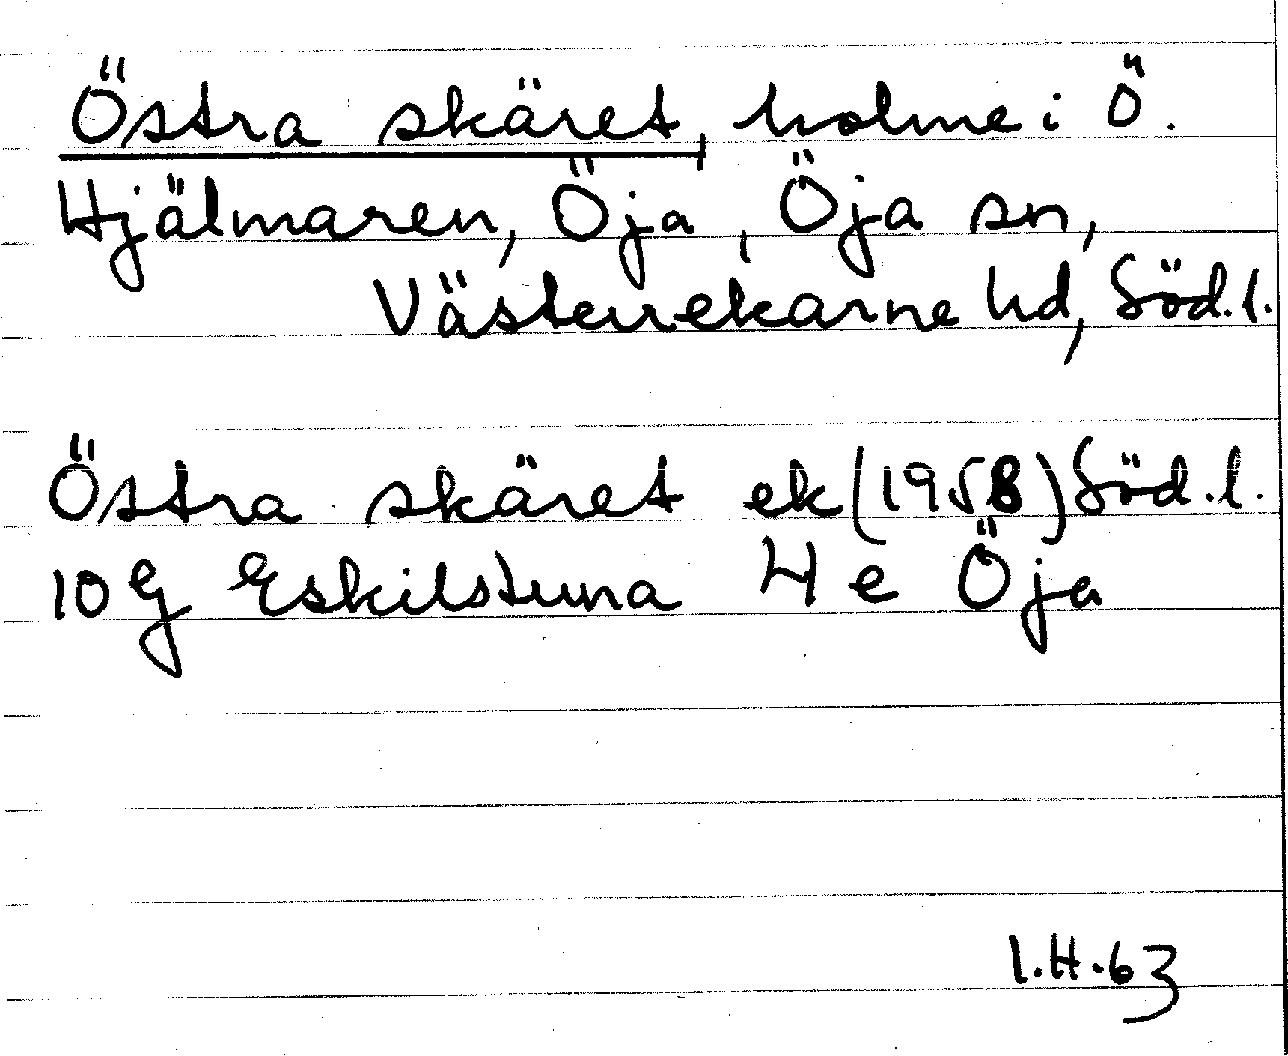 Östra skäret, holme i Ö.
Hjälmaren, Öja, Öja sn,
Västerrekarne hd, Söd.l.
Östra skäret ek (1958) Söd.l.
10 g Eskilstuna 4 e Öja
I.H.63